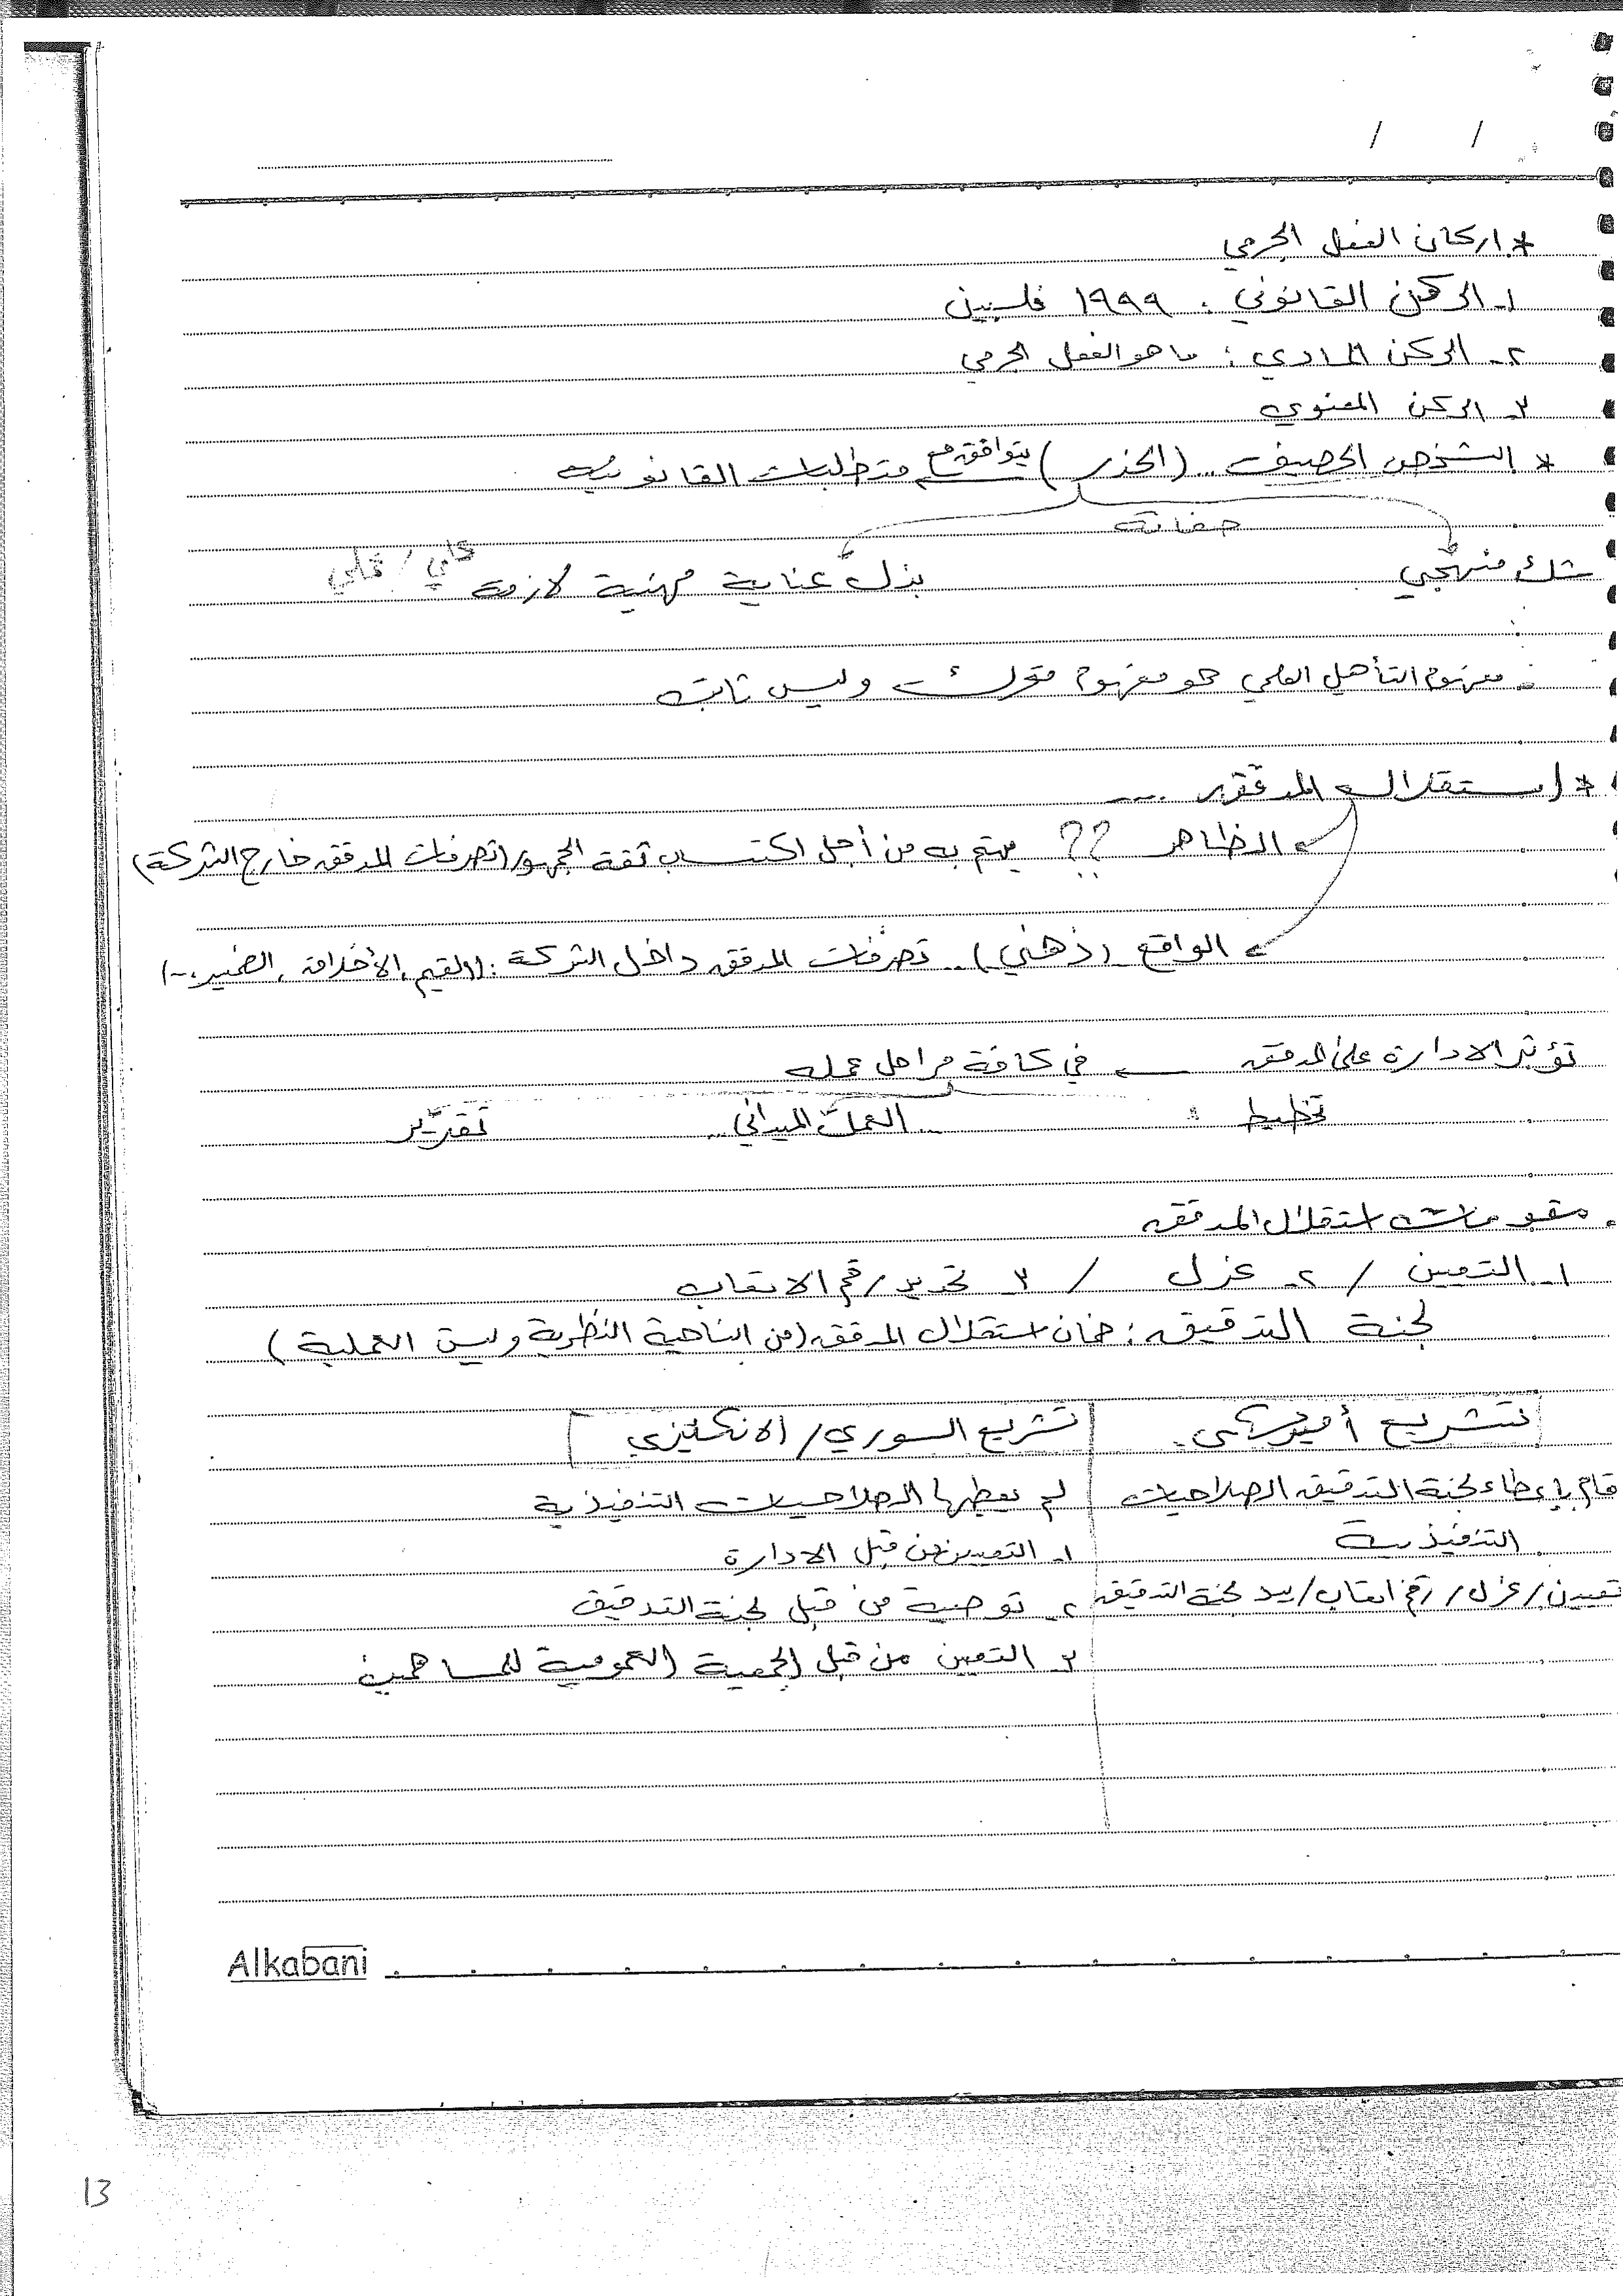 / /
* اركان الفعل الجرمي
١- الركن القانوني : ١٩٩٩
٢- الركن المادي : ما هو الفعل الجرمي
٣- الركن المعنوي
* الشخص الحصيف (الحذر) يتوافق مع متطلبات القانونية
صفاته
شك منهجي بذل عناية مهنية لازمة
- مفهوم التأهيل العلمي هو مفهوم متحرك وليس ثابت
* استقلال المدقق ....
الظاهر ?? يهتم به من أجل اكتساب ثقة الجمهور (تصرفات المدقق خارج الشركة)
الواقع (ذهني).. تصرفات المدقق داخل الشركة : (القيم، الأخلاق، الضمير،..)
تؤثر الادارة على المدقق ← في كافة مراحل عمله
تخطيط العمل الميداني تقرير
. مقومات استقلال المدقق
١- التعين / ٢- عزل / ٣ تحديد رقم الاتعاب
لجنة التدقيق : ضمان استقلال المدقق (من الناحية النظرية وليس العملية)
تشريع أميركي تشريع السوري/ الانكليزي
قام بإعطاء لجنة التدقيق الصلاحيات لم يعطيها الصلاحيات التنفيذية
التنفيذية ١- التعيين من قبل الادارة
تعيين/ عزل/ رقم اتعاب/ بيد لجنة التدقيق ٢- توصية من قبل لجنة التدقيق
٣- التعين من قبل الجمعية العمومية للمساهمين
Alkabani
13